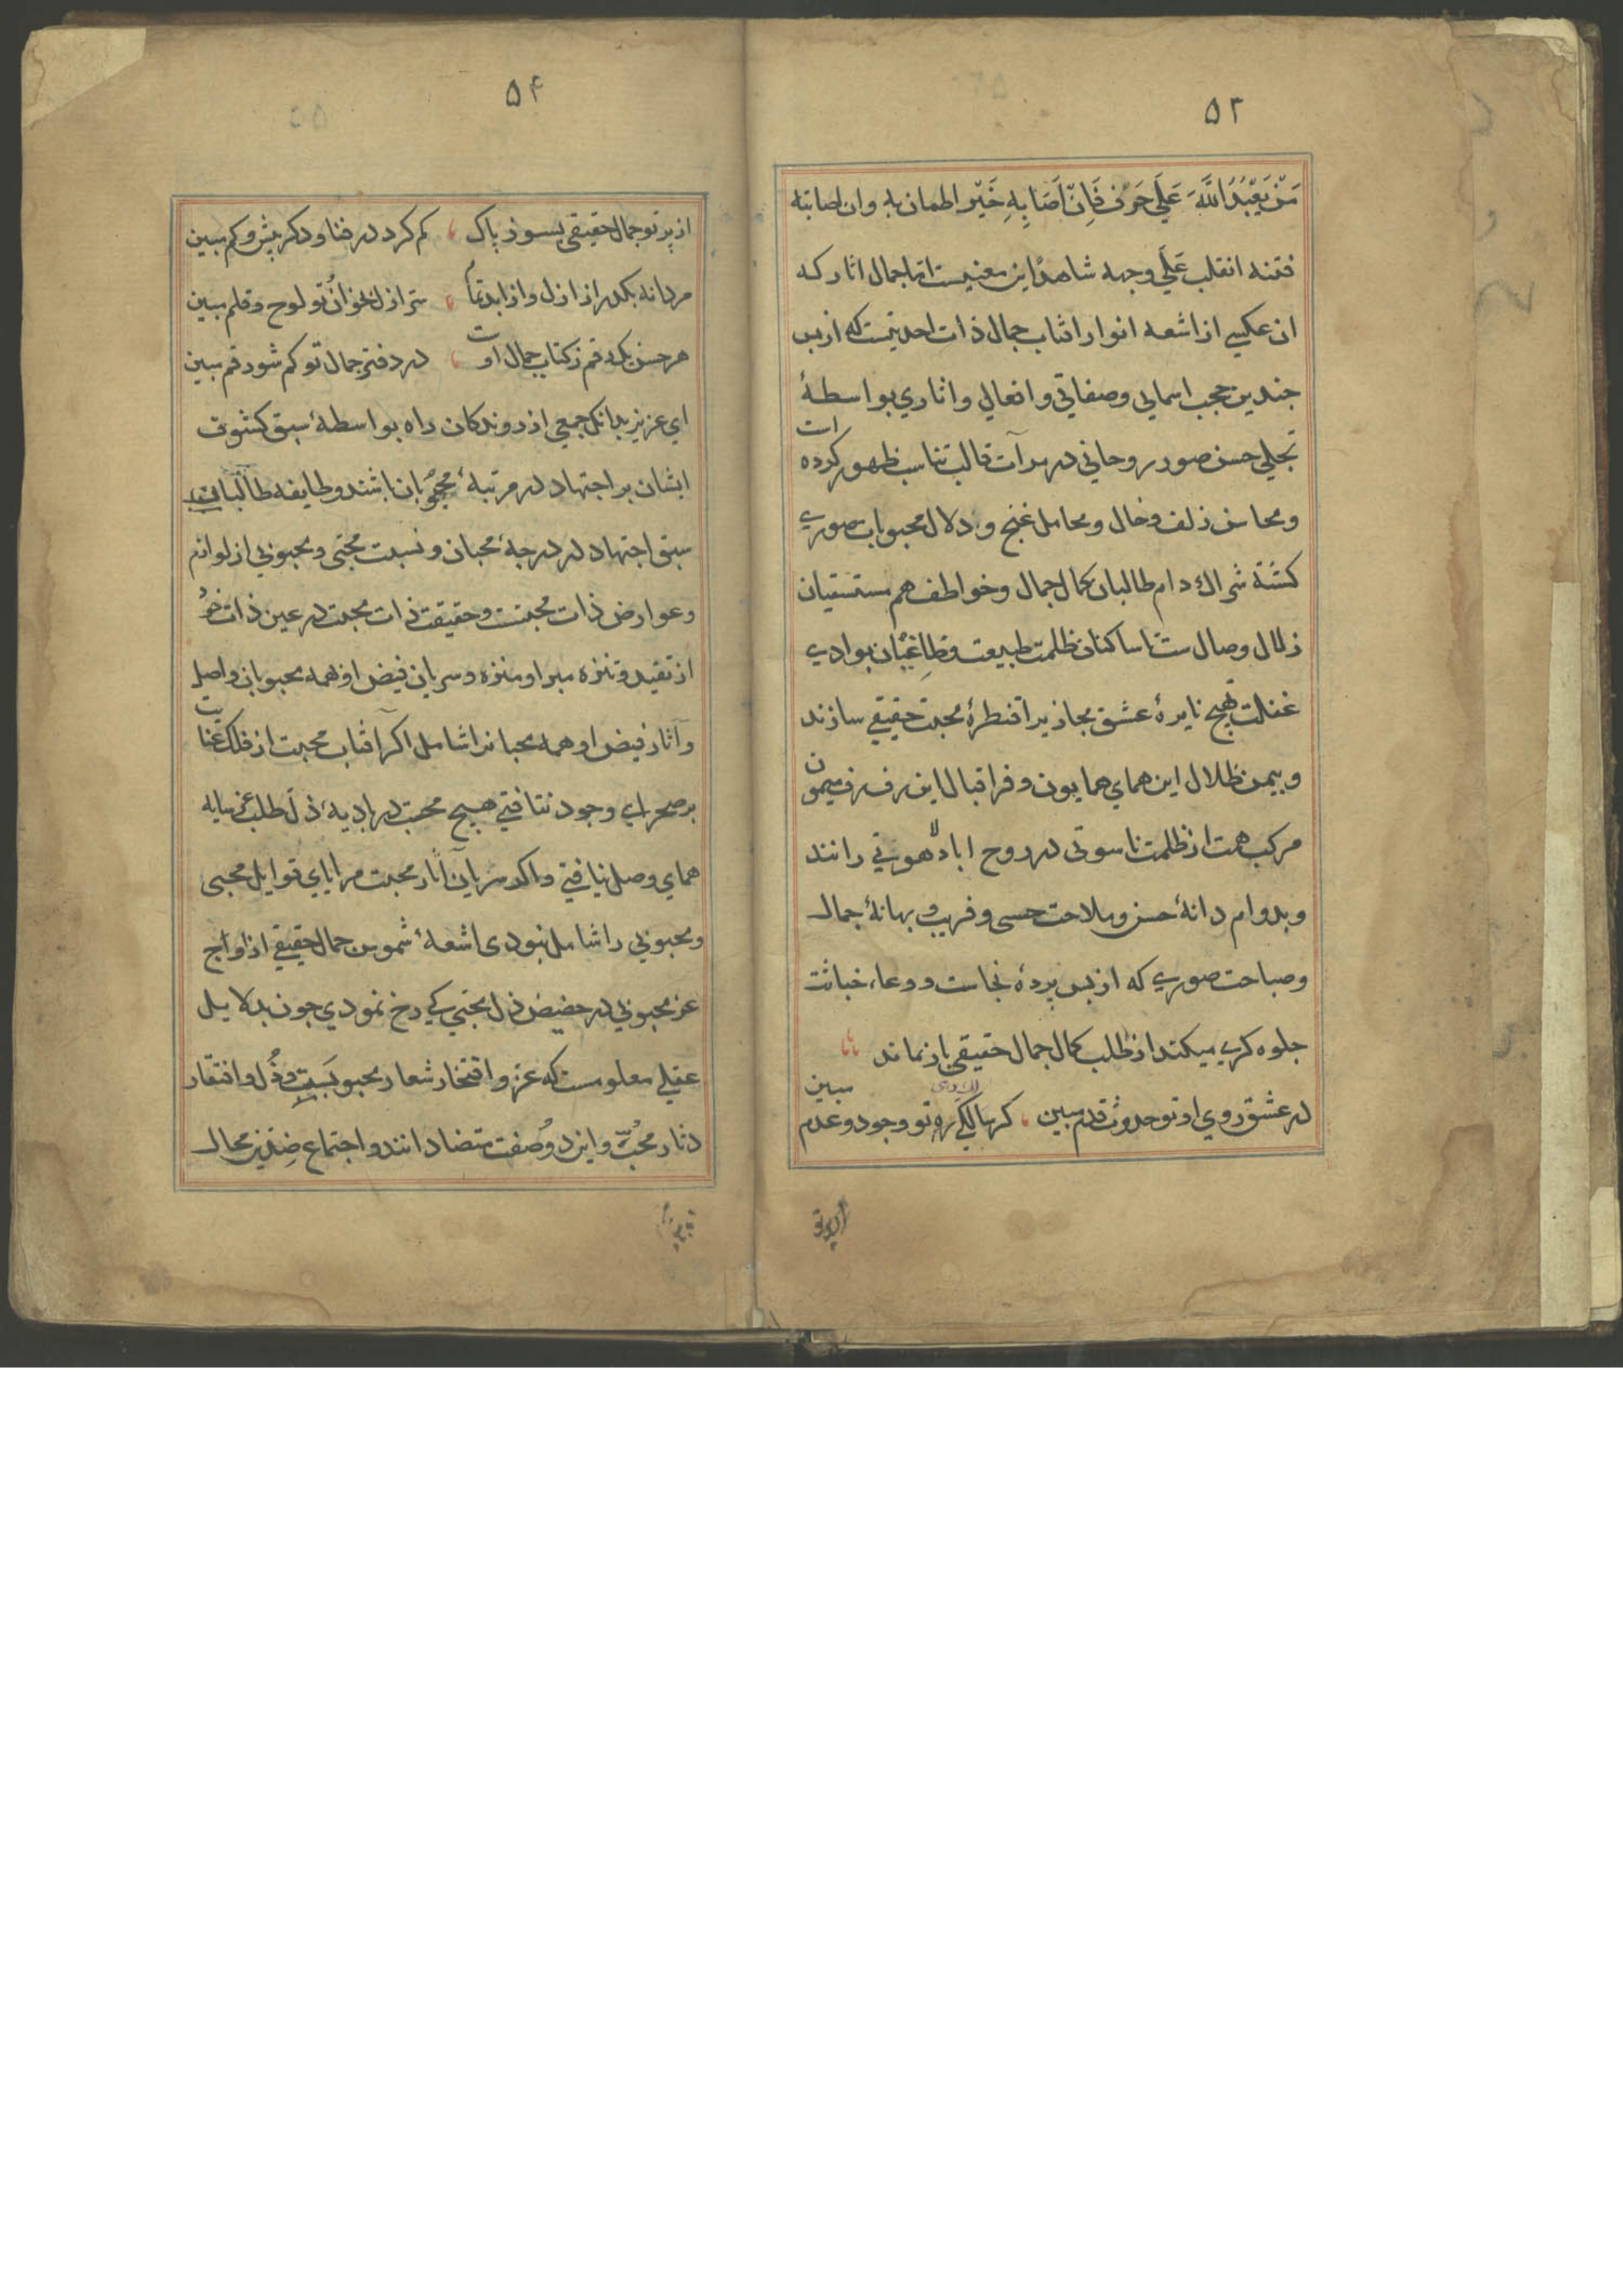 ۵۳
مَنْ يَعْبُدُ اللَّهَ عَلَي حَرْفٍ فَاِنْ اَصَابَهِ خَيْر اطمان به وان اصابته
فتنه انقلب عَلَي وجهه شاهد این معنیست اما جمال اثار که
ان عکسی از اشعه انوار افتاب جمال ذات احدیتست که از پس
جندین حجب اسمایی وصفاتی وافعالی واثاري بواسطهٔ
تجلي حسن صور روحاني در مرآت قالب تناسب ظهور کرده است
ومحاسن زلف وخال ومحامل غنج و دلال محبوبات صوري
کشتهٔ شراك دام طالبان کمال جمال وخواطف همم مستسقیان
زلال وصال ست تا ساکنان ظلمت طبیعت وطاغیان بوادي
غفلت تهیج نایرهٔ عشق مجازیرا قنطرهٔ محبت حقیقي سازند
وبیمن ظلال این هماي همایون وفر اقبال این رفرف میمون
مرکب همت از ظلمت ناسوتی در روح اباد لاهوتی رانند
وبدوام دانهٔ حسن وملاحت حسی وفریب و بهانهٔ جمال
وصباحت صوري که از پس پردهٔ نجاست و وعاء خباثت
جلوه کري میکند از طلب کمال جمال حقیقي باز نماند
در عشق روي او تو حدوث وقدم مبین کرسالکي ره تو وجود وعدم مبین
۵۴
از پرتو جمال حقیقی بسوز پاک کم کرد در فنا ودکر بیش وکم مبین
مردانه بکذر از ازل واز ابد تمام سر ازل بخوان تو لوح وقلم مبین
هر حسن یک رقم ز کتاب جمال اوست در دفتر جمال تو کم شو رقم مبین
اي عزیز بدانکه جمعي از روندکان راه بواسطهٔ سبق کشوف
ایشان بر اجتهاد در مرتبهٔ محبوبان باشند وطایفه طالبان
سبق اجتهاد در درجهٔ محبان ونسبت محبّی ومحبوبي از لوازم
وعوارض ذات محبتست وحقیقت ذات محبت در عین ذات خود
از تقید وتنزه مبرا ومنزه وسریان فیض او همه محبوبان واصل
وآثار فیض او همه محبانرا شامل اکر آفتاب محبت از فلک عنایت
بر صحراي وجود نتافتي هیچ محب در بادیهٔ ذل طلب عز سایه
هماي وصل نیافتي واکر سریان آثار محبت مرایاي قوایل محبی
ومحبوبي را شامل نبودی اشعهٔ شموس جمال حقیقي از اواج
عز محبوبي در حضیض ذل محبّي کي رخ نمودي جون بدلایل
عقلي معلومست که عز وافتخار شعار محبوبیست وذُل وافتقار
دثار محبّ واین دو صفت متضادانند واجتماع ضِدین محال